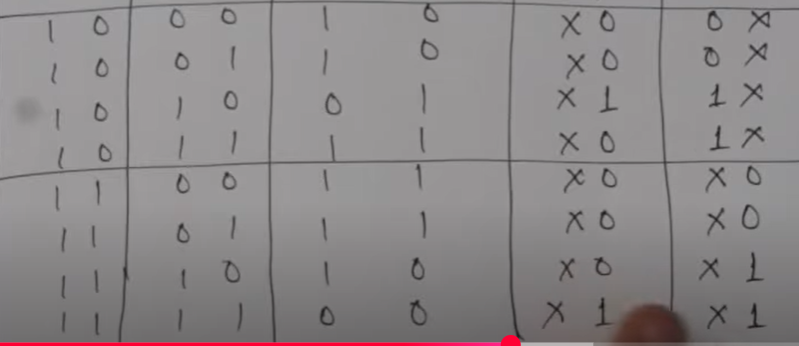 1 0 0 0 1 0 X 0 0 X
1 0 0 1 1 0 X 0 0 X
1 0 1 0 0 1 X 1 1 X
1 0 1 1 1 1 X 0 1 X
1 1 0 0 1 1 X 0 X 0
1 1 0 1 1 1 X 0 X 0
1 1 1 0 1 0 X 0 X 1
1 1 1 1 0 0 X 1 X 1